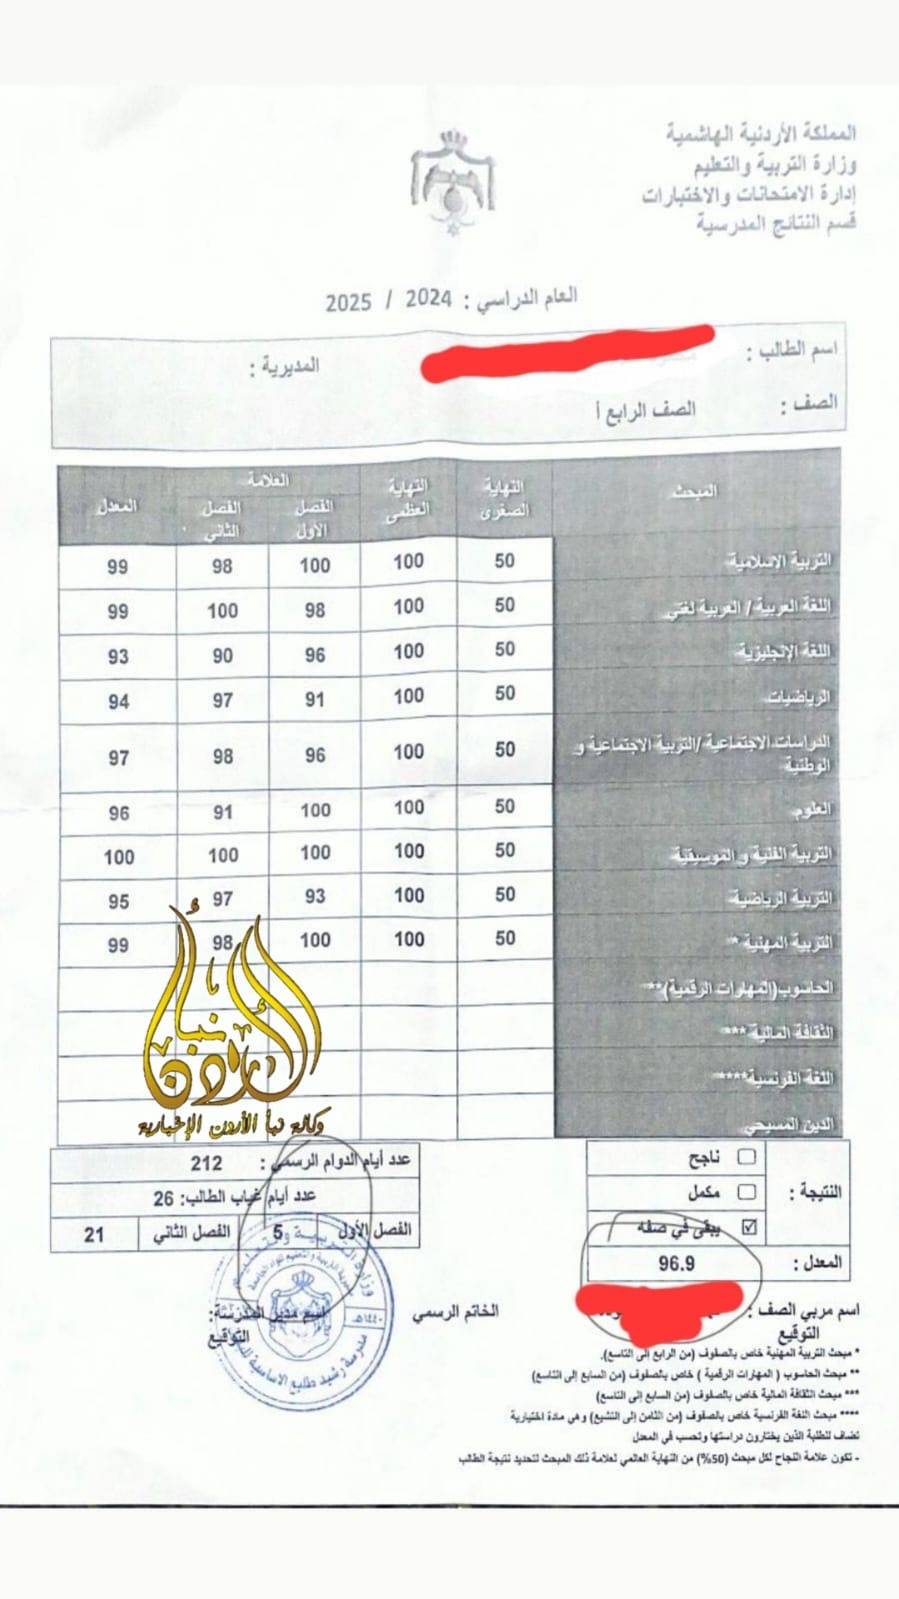 المملكة الأردنية الهاشمية
وزارة التربية والتعليم
إدارة الامتحانات والاختبارات
قسم النتائج المدرسية
العام الدراسي : 2024 / 2025
اسم الطالب : المديرية :
الصف : الصف الرابع أ
المبحث النهاية الصغرى النهاية العظمى العلامة الفصل الأول الفصل الثاني المعدل
التربية الاسلامية 50 100 100 98 99
اللغة العربية / العربية لغتي 50 100 98 100 99
اللغة الإنجليزية 50 100 96 90 93
الرياضيات 50 100 91 97 94
الدراسات الاجتماعية /التربية الاجتماعية و 50 100 96 98 97
الوطنية
العلوم 50 100 100 91 96
التربية الفنية و الموسيقية 50 100 100 100 100
التربية الرياضية 50 100 93 97 95
التربية المهنية * 50 100 100 98 99
الحاسوب(المهارات الرقمية)**
الثقافة المالية ***
اللغة الفرنسية****
الدين المسيحي
نبأ الأردن
وكالة نبأ الأردن الإخبارية
النتيجة :
ناجح
مكمل
يبقى في صفه
المعدل : 96.9
عدد أيام الدوام الرسمي : 212
عدد أيام غياب الطالب: 26
الفصل الأول 5 الفصل الثاني 21
اسم مربي الصف : الخاتم الرسمي اسم مدير المدرسة:
التوقيع التوقيع
وزارة التربية والتعليم
١٤٤٠هـ
مدرسة رشيد طليع الاساسية
* مبحث التربية المهنية خاص بالصفوف (من الرابع إلى التاسع).
** مبحث الحاسوب ( المهارات الرقمية ) خاص بالصفوف (من السابع إلى التاسع)
*** مبحث الثقافة المالية خاص بالصفوف (من السابع إلى التاسع)
**** مبحث اللغة الفرنسية خاص بالصفوف (من الثامن إلى التاسع) وهي مادة اختيارية
تضاف للطلبة الذين يختارون دراستها وتحسب في المعدل
- تكون علامة النجاح لكل مبحث (50%) من النهاية العظمى لعلامة ذلك المبحث لتحديد نتيجة الطالب